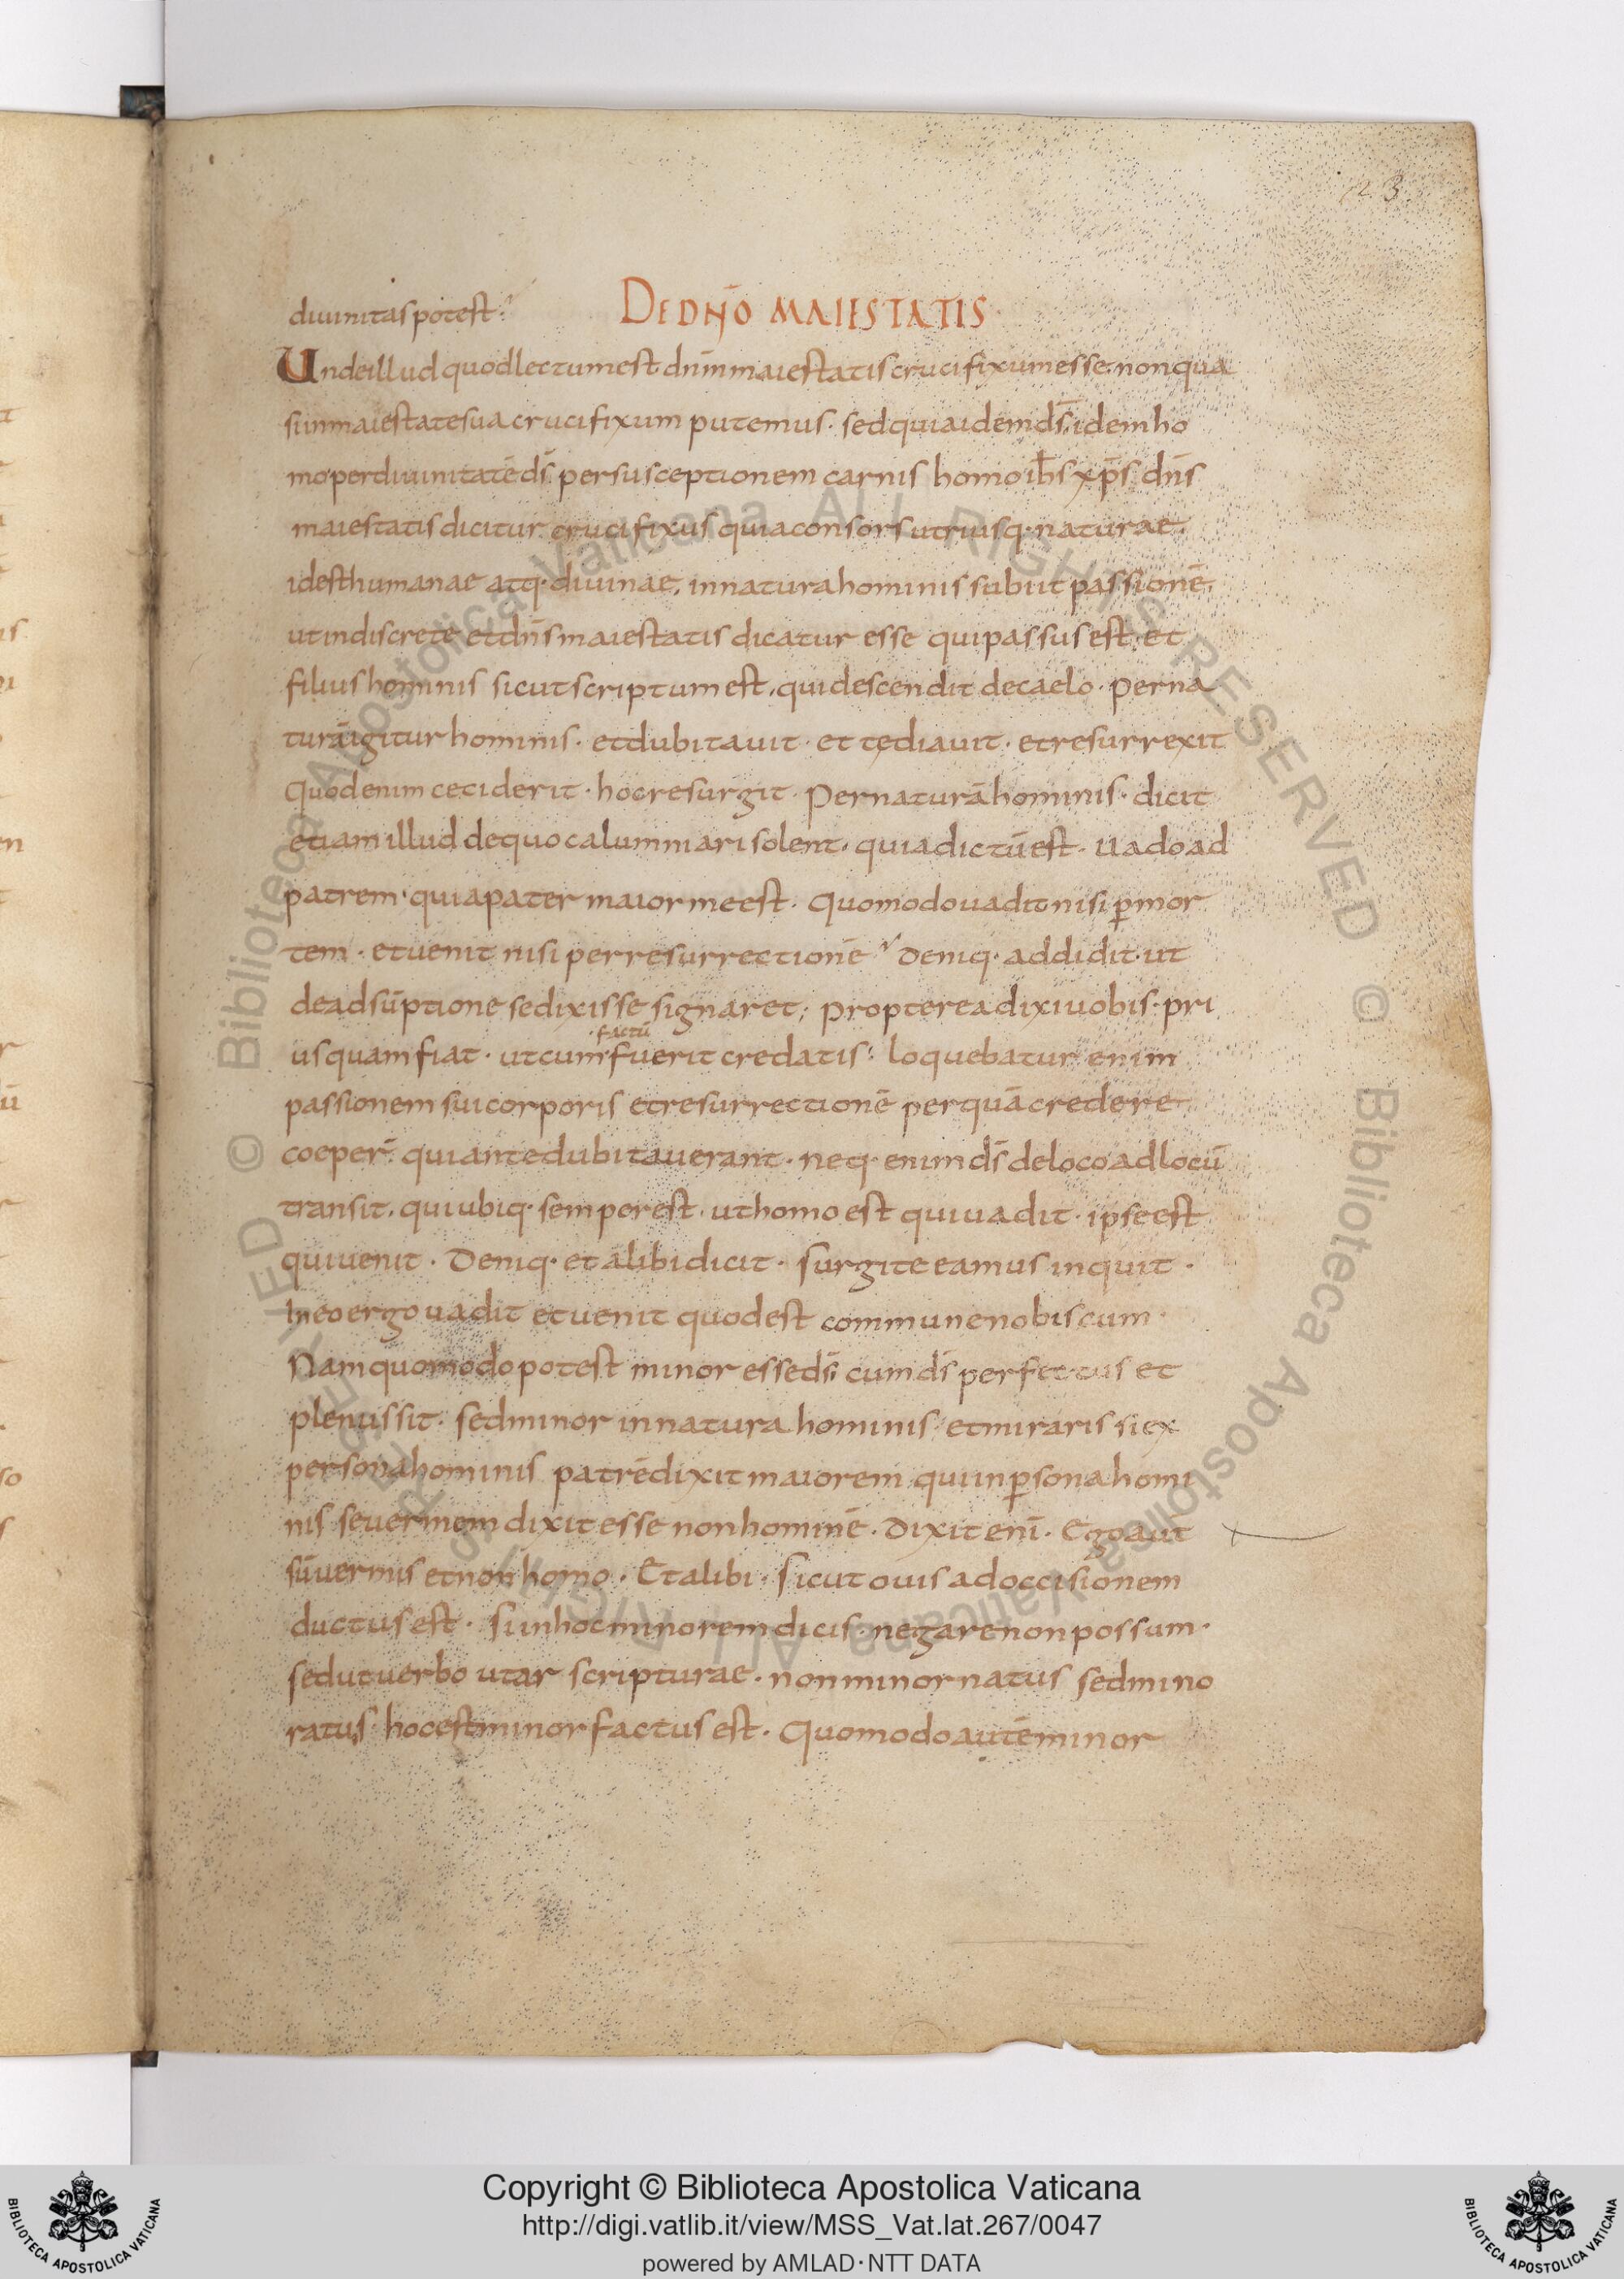 23
diuinitas potest. DE DN̄O MAIESTATIS
Unde illud quod lectum est dn̄m maiestatis crucifixum esse. non qua
si in maiestate sua crucifixum putemus. sed quia idem ds̄. idem ho
mo per diuinitatē ds̄. per susceptionem carnis homo ih̄s xp̄s. dn̄s
maiestatis dicitur crucifixus quia consors utriusq· naturae.
id est humanae atq· diuinae. in natura hominis subiit passionē.
ut indiscrete et dn̄s maiestatis dicatur esse qui passus est. et
filius hominis sicut scriptum est. qui descendit de caelo. Per na
turā igitur hominis. et dubitauit. et tędiauit. et resurrexit
Quod enim ceciderit. hoc resurgit. Per naturā hominis. dicit
etiam illud de quo calumniari solent. quia dictū est. Uado ad
patrem. quia pater maior me est. Quomodo uadit nisi p̄ mor
tem. et uenit nisi per resurrectionē? Deniq· addidit. ut
de adsūptione se dixisse signaret; Propterea dixi uobis. pri
us quam fiat. ut cum fuerit credatis. loquebatur enim
factū
passionem sui corporis et resurrectionē per quā credere
coeper̄. qui ante dubitauerant. neq· enim ds̄ de loco ad locū
transit. qui ubiq· semper est. ut homo est qui uadit. ipse est
qui uenit. Deniq· et alibi dicit. surgite eamus inquit.
In eo ergo uadit et uenit quod est commune nobiscum.
Nam quomodo potest minor esse ds̄. cum ds̄ perfectus et
plenus sit. sed minor in natura hominis. et miraris si ex
persona hominis patrē dixit maiorem qui in p̄sona homi
nis se uermem dixit esse non hominē. Dixit enī. Ego aut
sū uermis et non homo. Et alibi. Sicut ouis ad occisionem
ductus est. Si in hoc minorem dicis. negare non possum.
sed ut uerbo utar scripturae. non minor natus sed mino
ratus hoc est minor factus est. Quomodo autē minor
© Biblioteca Apostolica Vaticana ALL RIGHTS RESERVED © Biblioteca Apostolica Vaticana ALL RIGHTS RESERVED
Copyright © Biblioteca Apostolica Vaticana
http://digi.vatlib.it/view/MSS_Vat.lat.267/0047
powered by AMLAD·NTT DATA
BIBLIOTECA APOSTOLICA VATICANA
BIBLIOTECA APOSTOLICA VATICANA